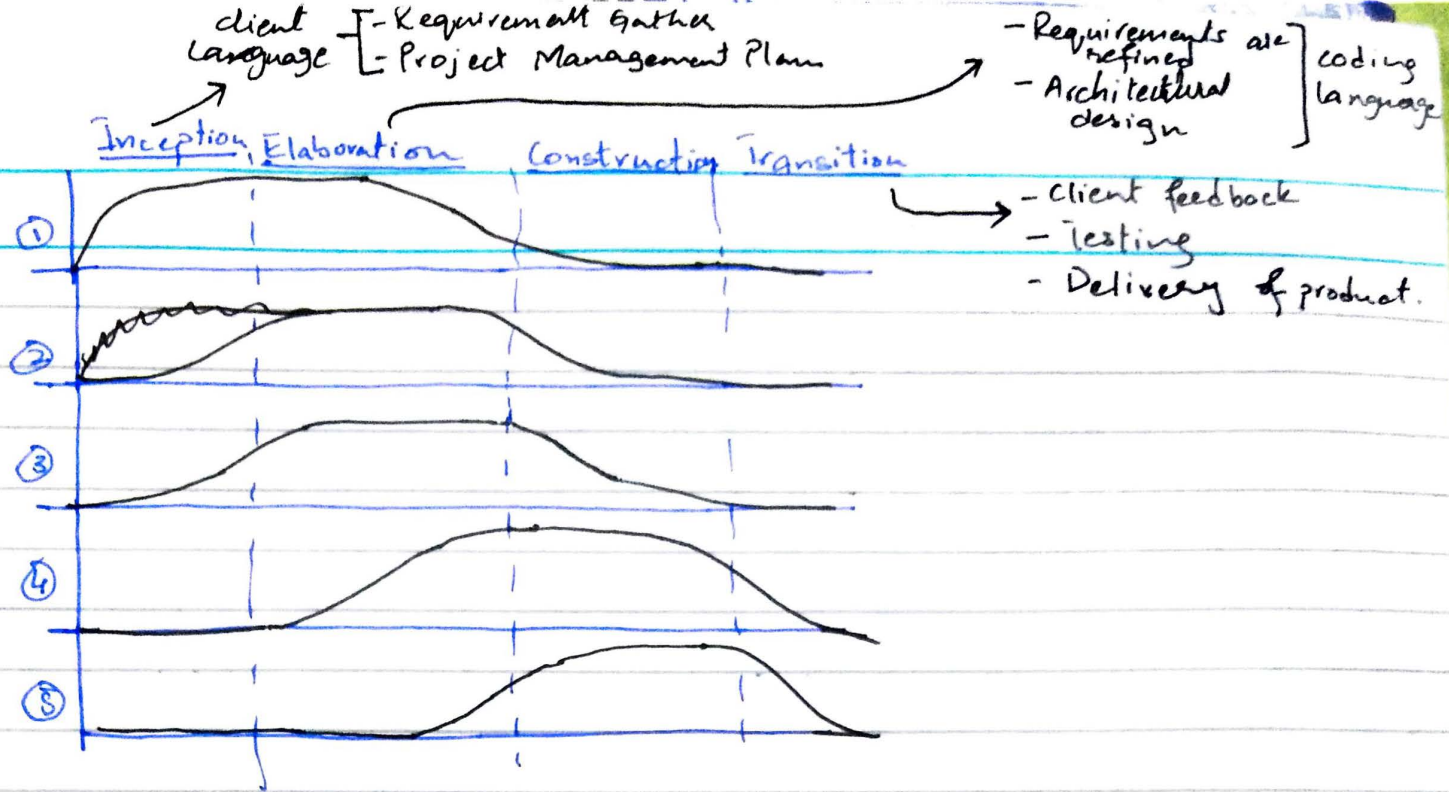 client
language
- Requirement Gather
- Project Management Plan
- Requirements are
refined
- Architectural
design
coding
language
Inception, Elaboration Construction Transition
- Client feedback
- Testing
- Delivery of product.
①
②
③
④
⑤